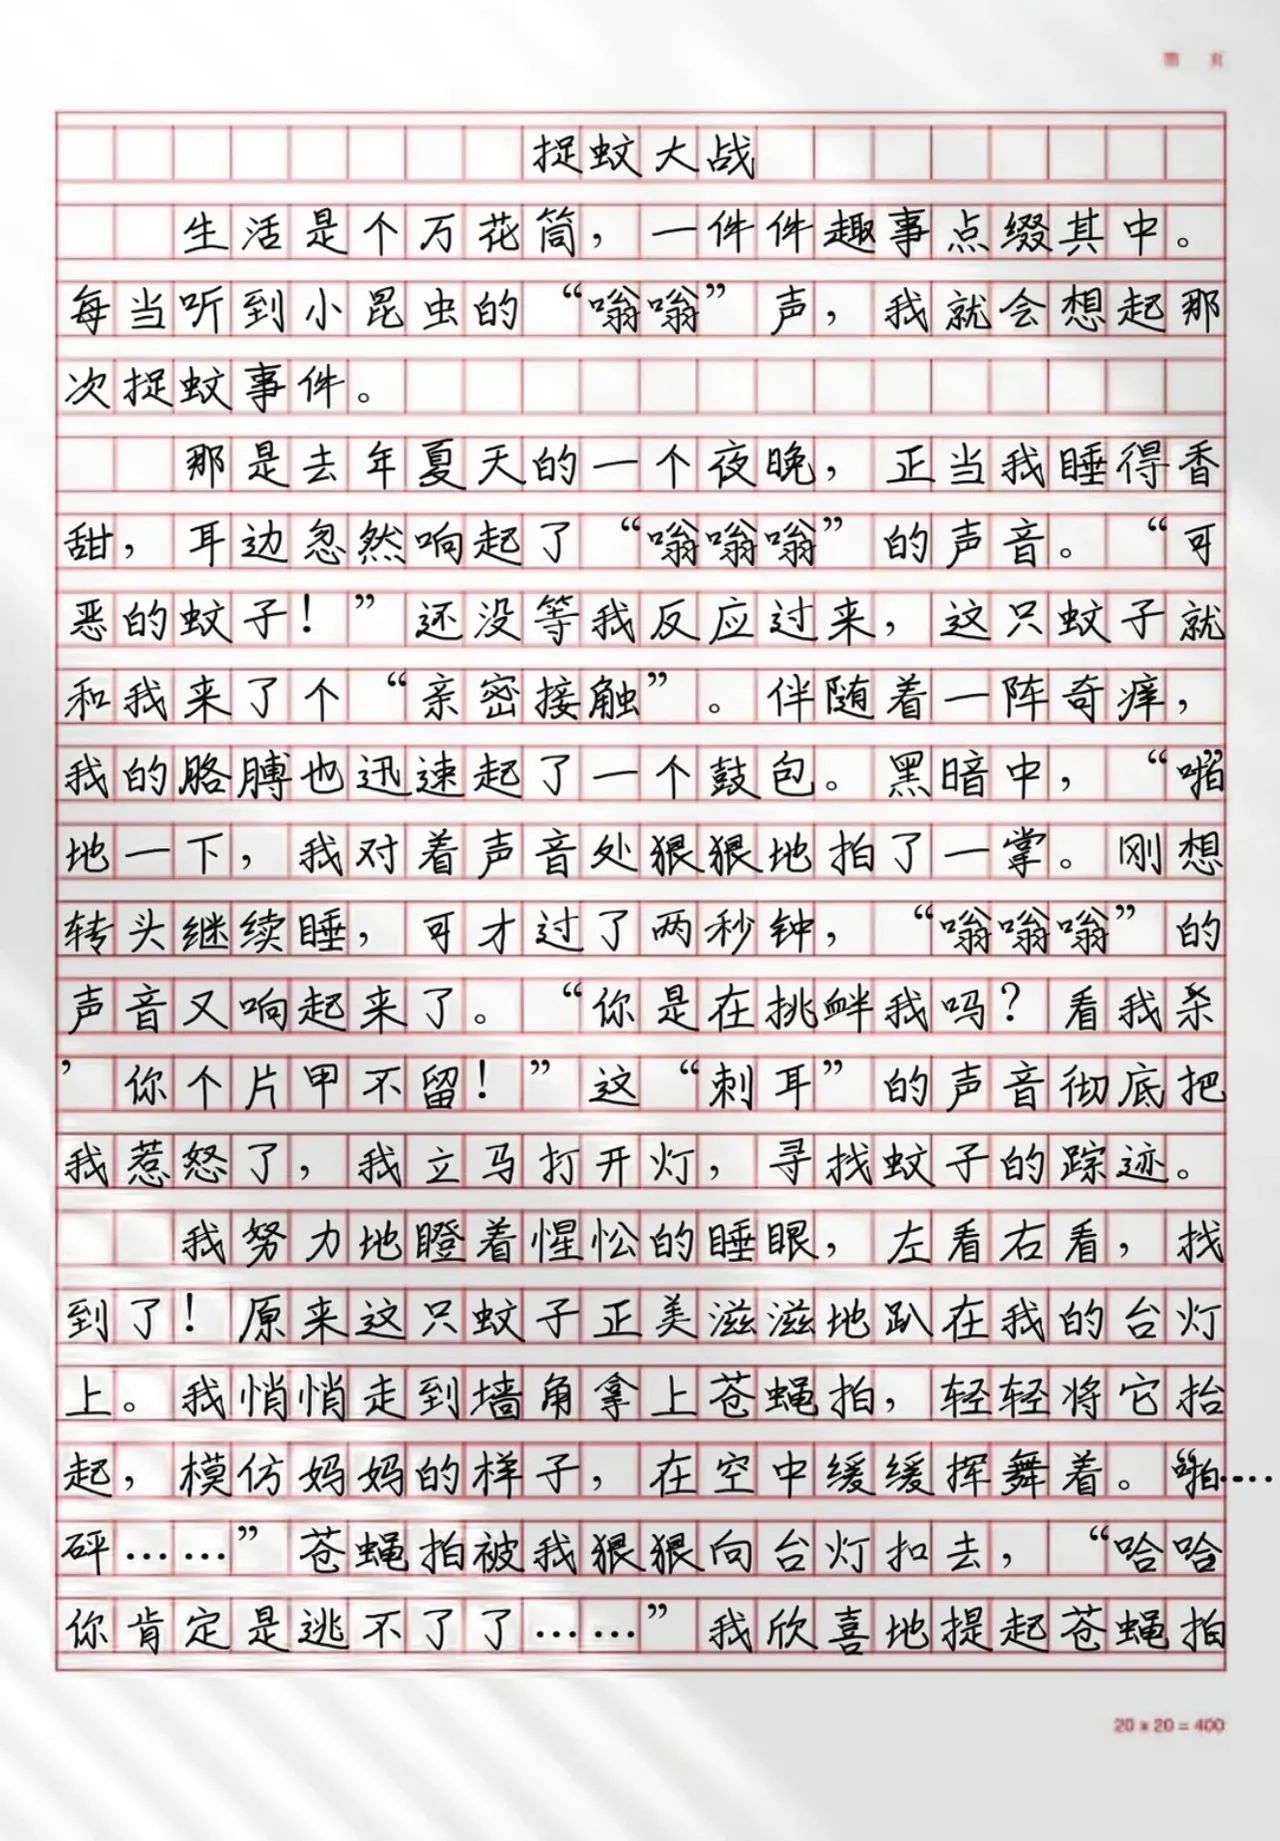 捉蚊大战
生活是个万花筒，一件件趣事点缀其中。
每当听到小昆虫的“嗡嗡”声，我就会想起那
次捉蚊事件。
那是去年夏天的一个夜晚，正当我睡得香
甜，耳边忽然响起了“嗡嗡嗡”的声音。“可
恶的蚊子！”还没等我反应过来，这只蚊子就
和我来了个“亲密接触”。伴随着一阵奇痒，
我的胳膊也迅速起了一个鼓包。黑暗中，“啪”
地一下，我对着声音处狠狠地拍了一掌。刚想
转头继续睡，可才过了两秒钟，“嗡嗡嗡”的
声音又响起来了。“你是在挑衅我吗？看我杀
’你个片甲不留！”这“刺耳”的声音彻底把
我惹怒了，我立马打开灯，寻找蚊子的踪迹。
我努力地瞪着惺忪的睡眼，左看右看，找
到了！原来这只蚊子正美滋滋地趴在我的台灯
上。我悄悄走到墙角拿上苍蝇拍，轻轻将它抬
起，模仿妈妈的样子，在空中缓缓挥舞着。“啪……
砰……”苍蝇拍被我狠狠向台灯扣去，“哈哈
你肯定是逃不了了……”我欣喜地提起苍蝇拍
20 x 20 = 400